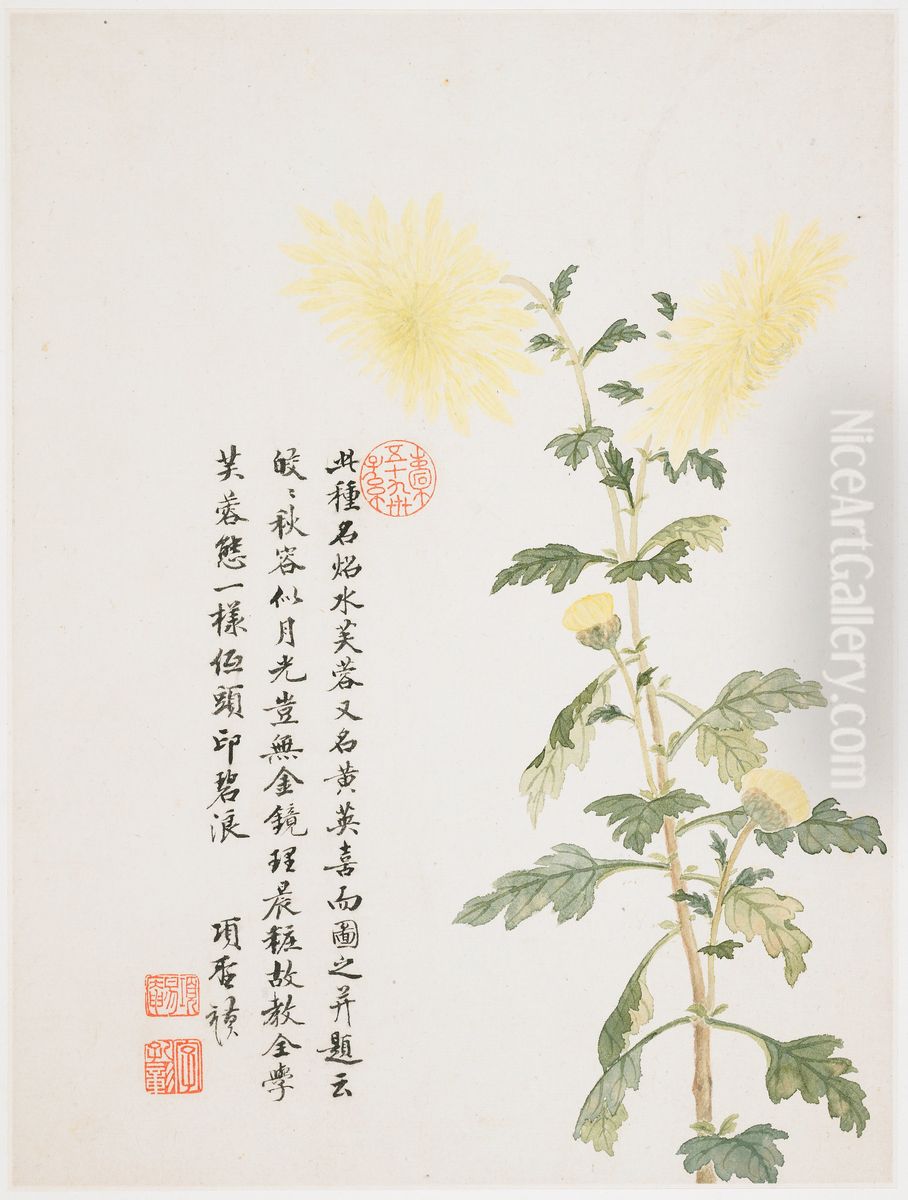 此種名炤水芙蓉又名黃英喜而圖之并題云
皎〻秋容似月光豈無金鏡理晨粧故教全學
芙蓉態一樣伍頭印碧浪
項聖禎
NiceArtGallery.com